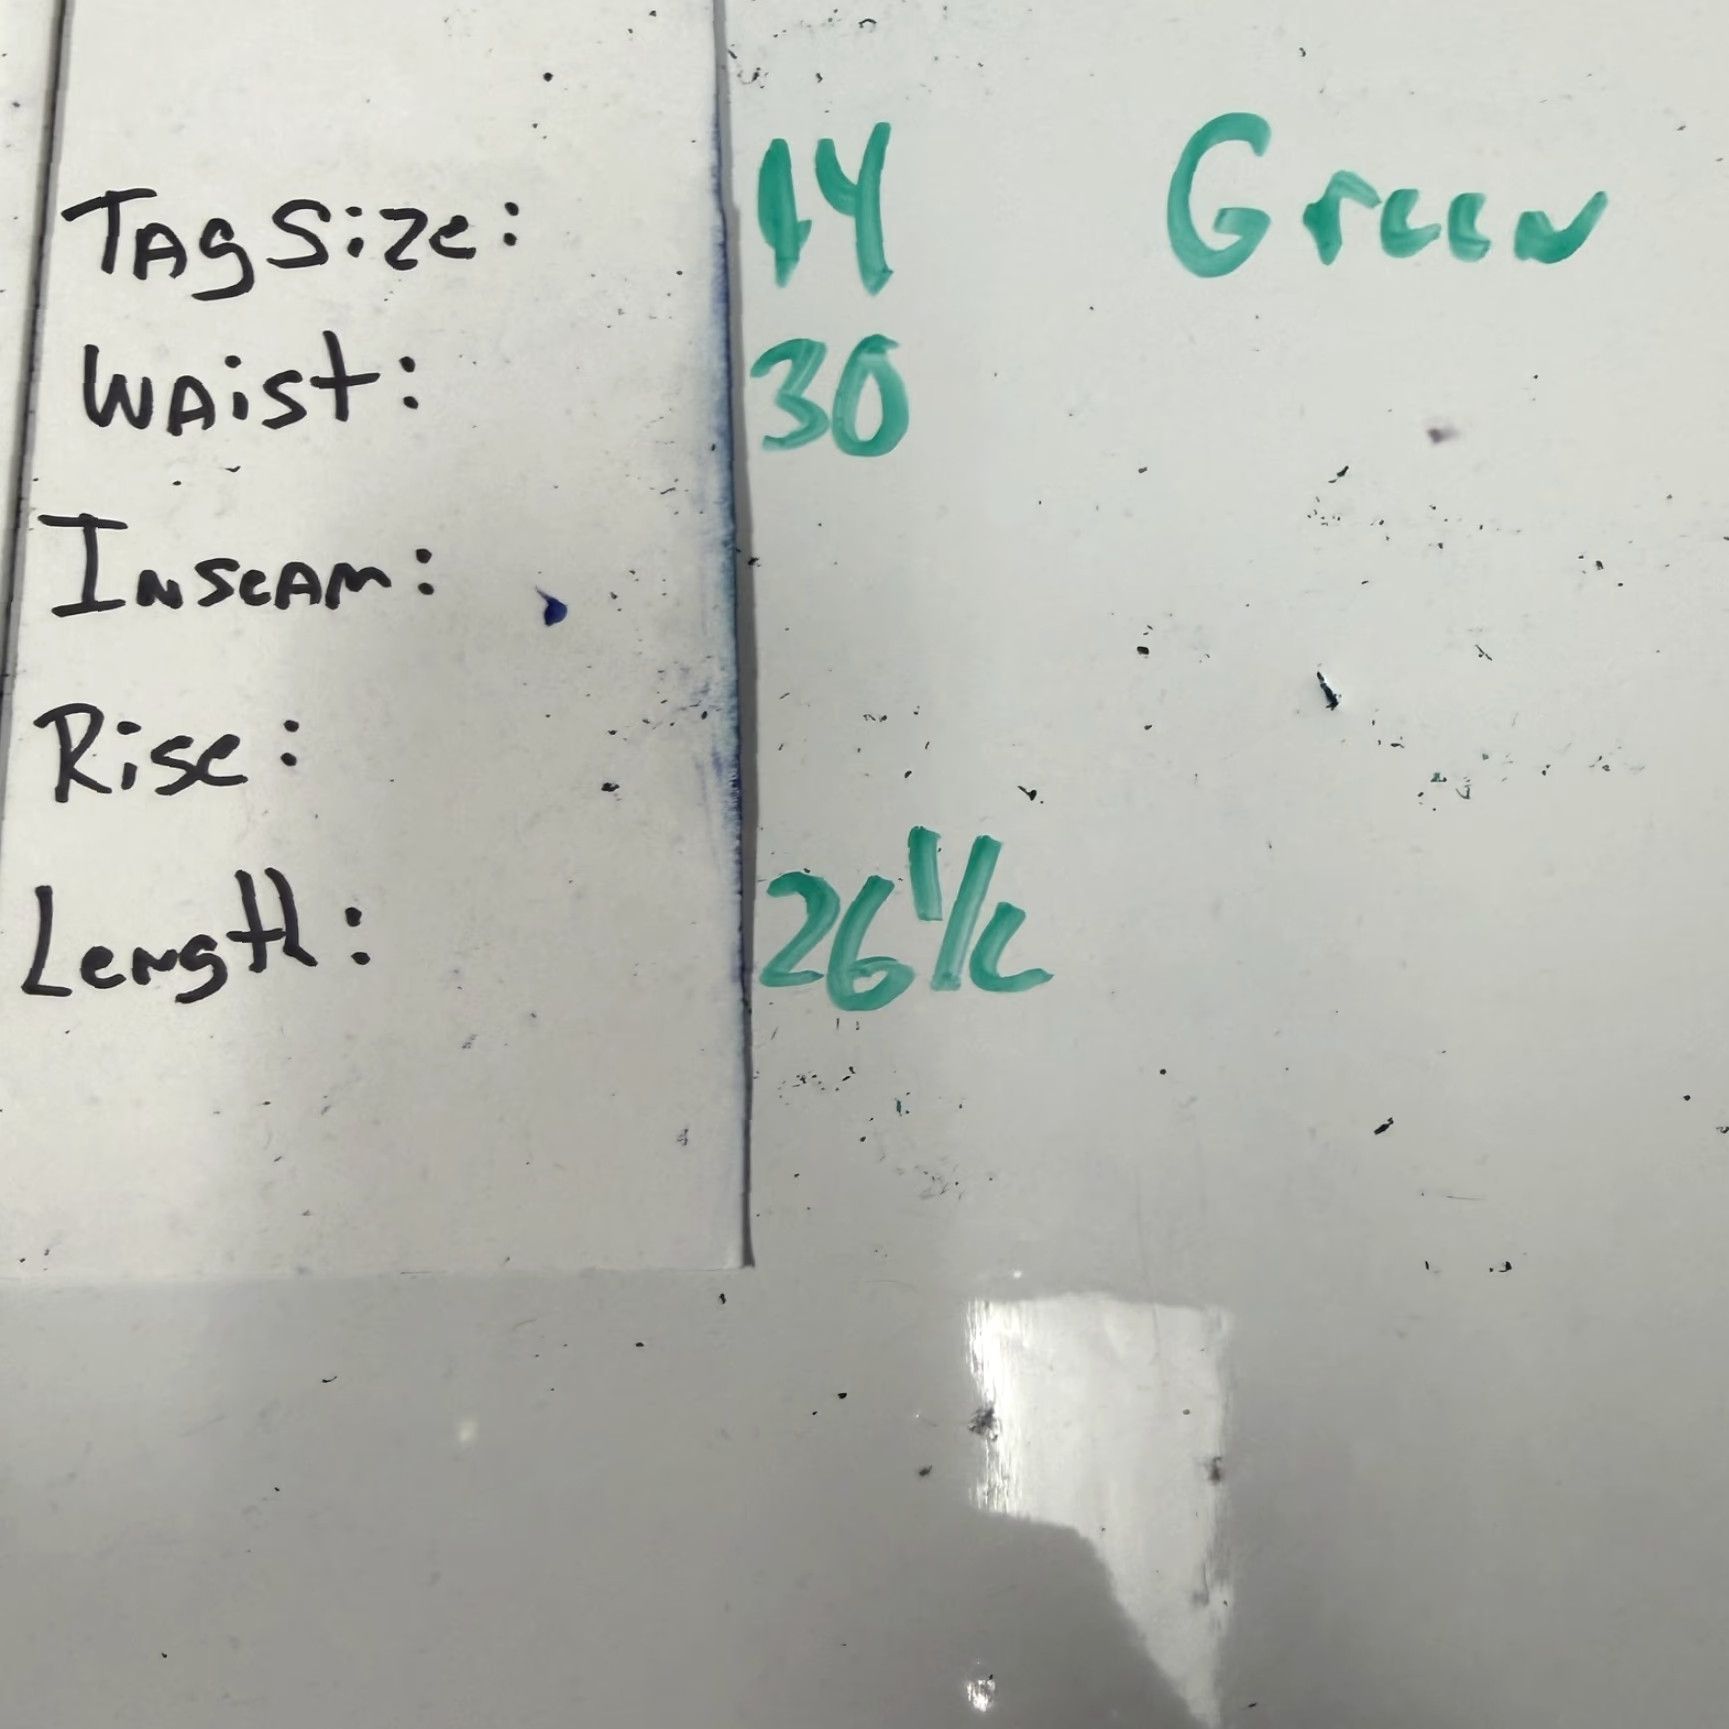 Tag Size: 14 Green
Waist: 30
Inseam:
Rise:
Length: 26 1/2